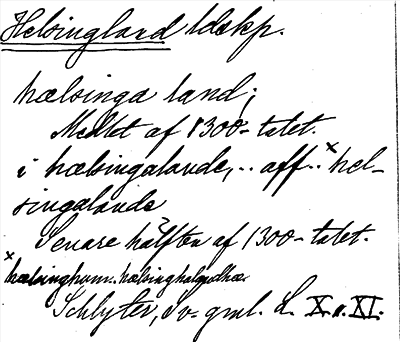 Helsingland ldskp.
hælsinga land;
Medlet af 1300-talet.
i hælsingalande, .. aff .. x hel-
singalande
Senare hälften af 1300-talet.
x hælsinghum. hælsinghalandhæ
Schlyter, Sv. gml. L. X. o. XI.